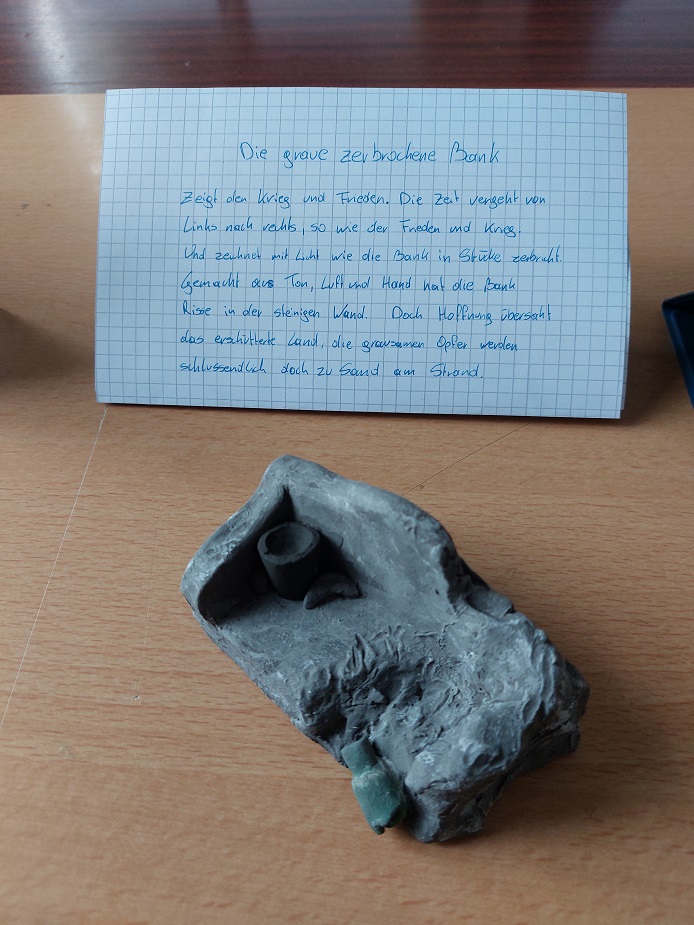 Die graue zerbrochene Bank
Zeigt den Krieg und Frieden. Die Zeit vergeht von
Links nach rechts, so wie der Frieden und Krieg.
Und zeichnet mit Licht wie die Bank in Stücke zerbricht.
Gemacht aus Ton, Luft und Hand hat die Bank
Risse in der steinigen Wand. Doch Hoffnung übersäht
das erschütterte Land, die grausamen Opfer werden
schlussendlich doch zu Sand am Strand.